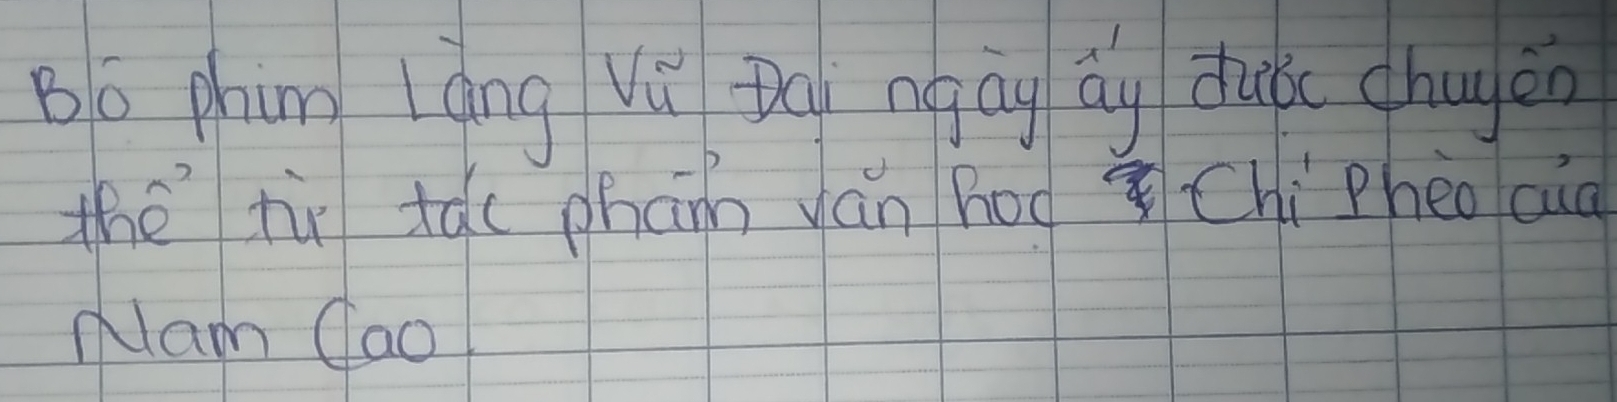 Bộ phim Làng Vũ Đại ngày ấy được chuyển
thể từ tác phẩm văn học Chí Phèo của
Nam Cao